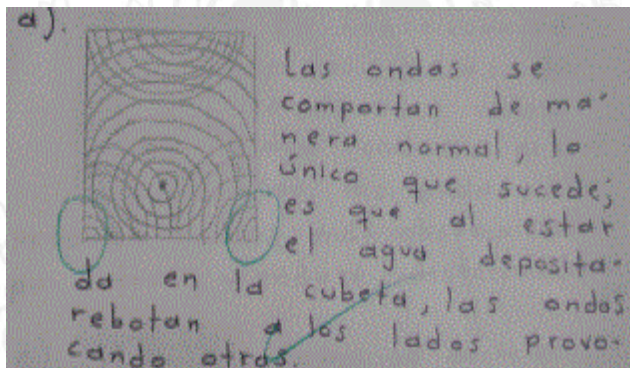 a).
Las ondas se
comportan de ma-
nera normal, lo
único que sucede;
es que al estar
el agua deposita-
da en la cubeta, las ondas
rebotan a los lados provo-
cando otras.